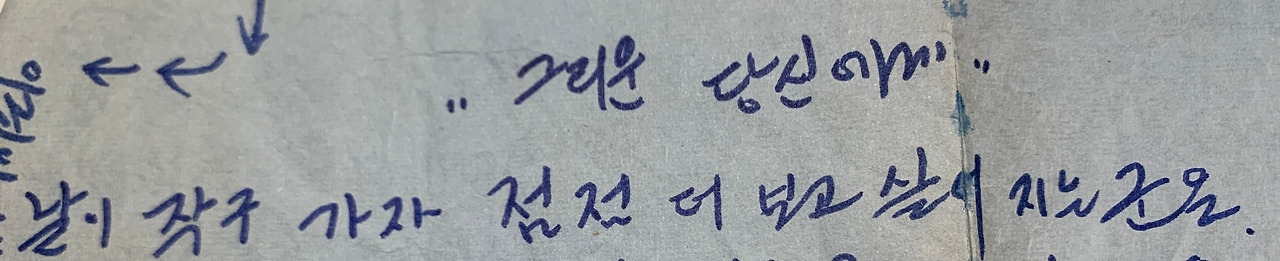 " 그리운 당신에게 "
날이 작구 가자 점점 더 보고 살어 지는군요.